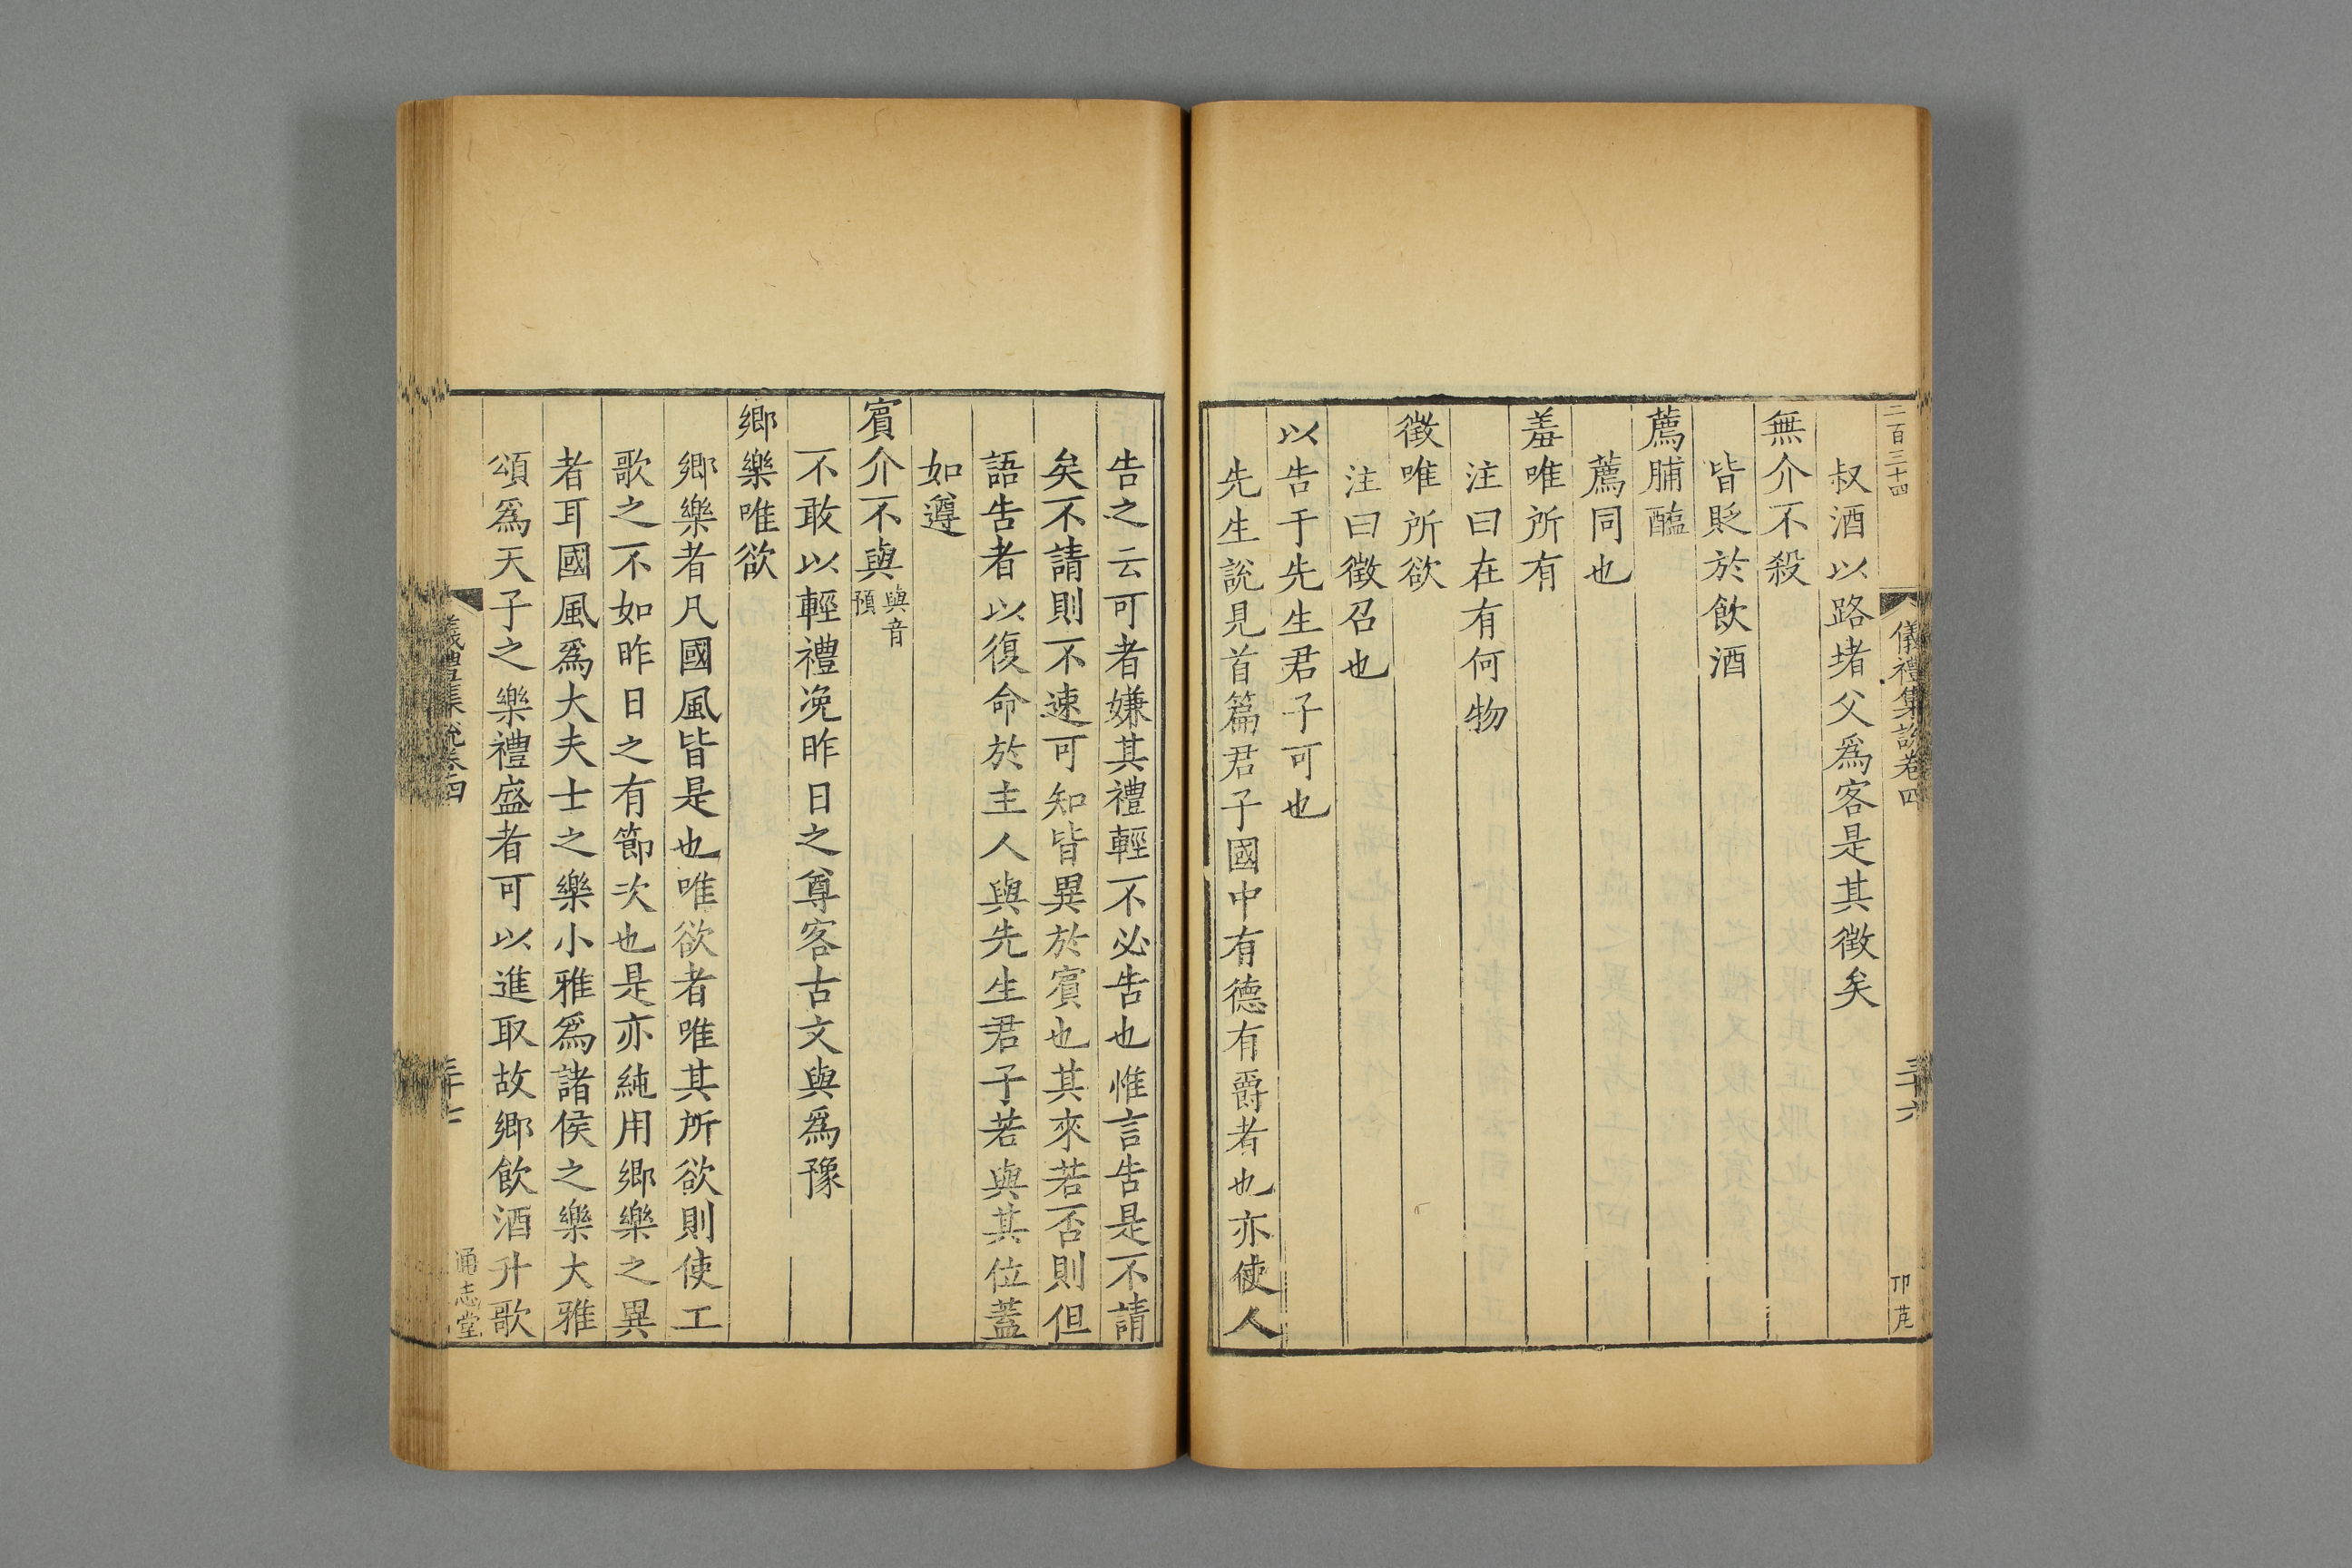 二百三十四
儀禮集說卷四
三十六
叔酒以路堵父爲客是其徵矣
無介不殺
皆貶於飲酒
薦脯醢
薦同也
羞唯所有
注曰在有何物
徵唯所欲
注曰徵召也
以告于先生君子可也
先生說見首篇君子國中有德有爵者也亦使人
告之云可者嫌其禮輕不必告也惟言告是不請
矣不請則不速可知皆異於賓也其來若否則但
語告者以復命於主人與先生君子若與其位蓋
如遵
賓介不與與音預
不敢以輕禮浼昨日之尊客古文與爲豫
鄉樂唯欲
鄉樂者凡國風皆是也唯欲者唯其所欲則使工
歌之不如昨日之有節次也是亦純用鄉樂之異
者耳國風爲大夫士之樂小雅爲諸侯之樂大雅
頌爲天子之樂禮盛者可以進取故鄉飲酒升歌
儀禮集說卷四
三十七
通志堂